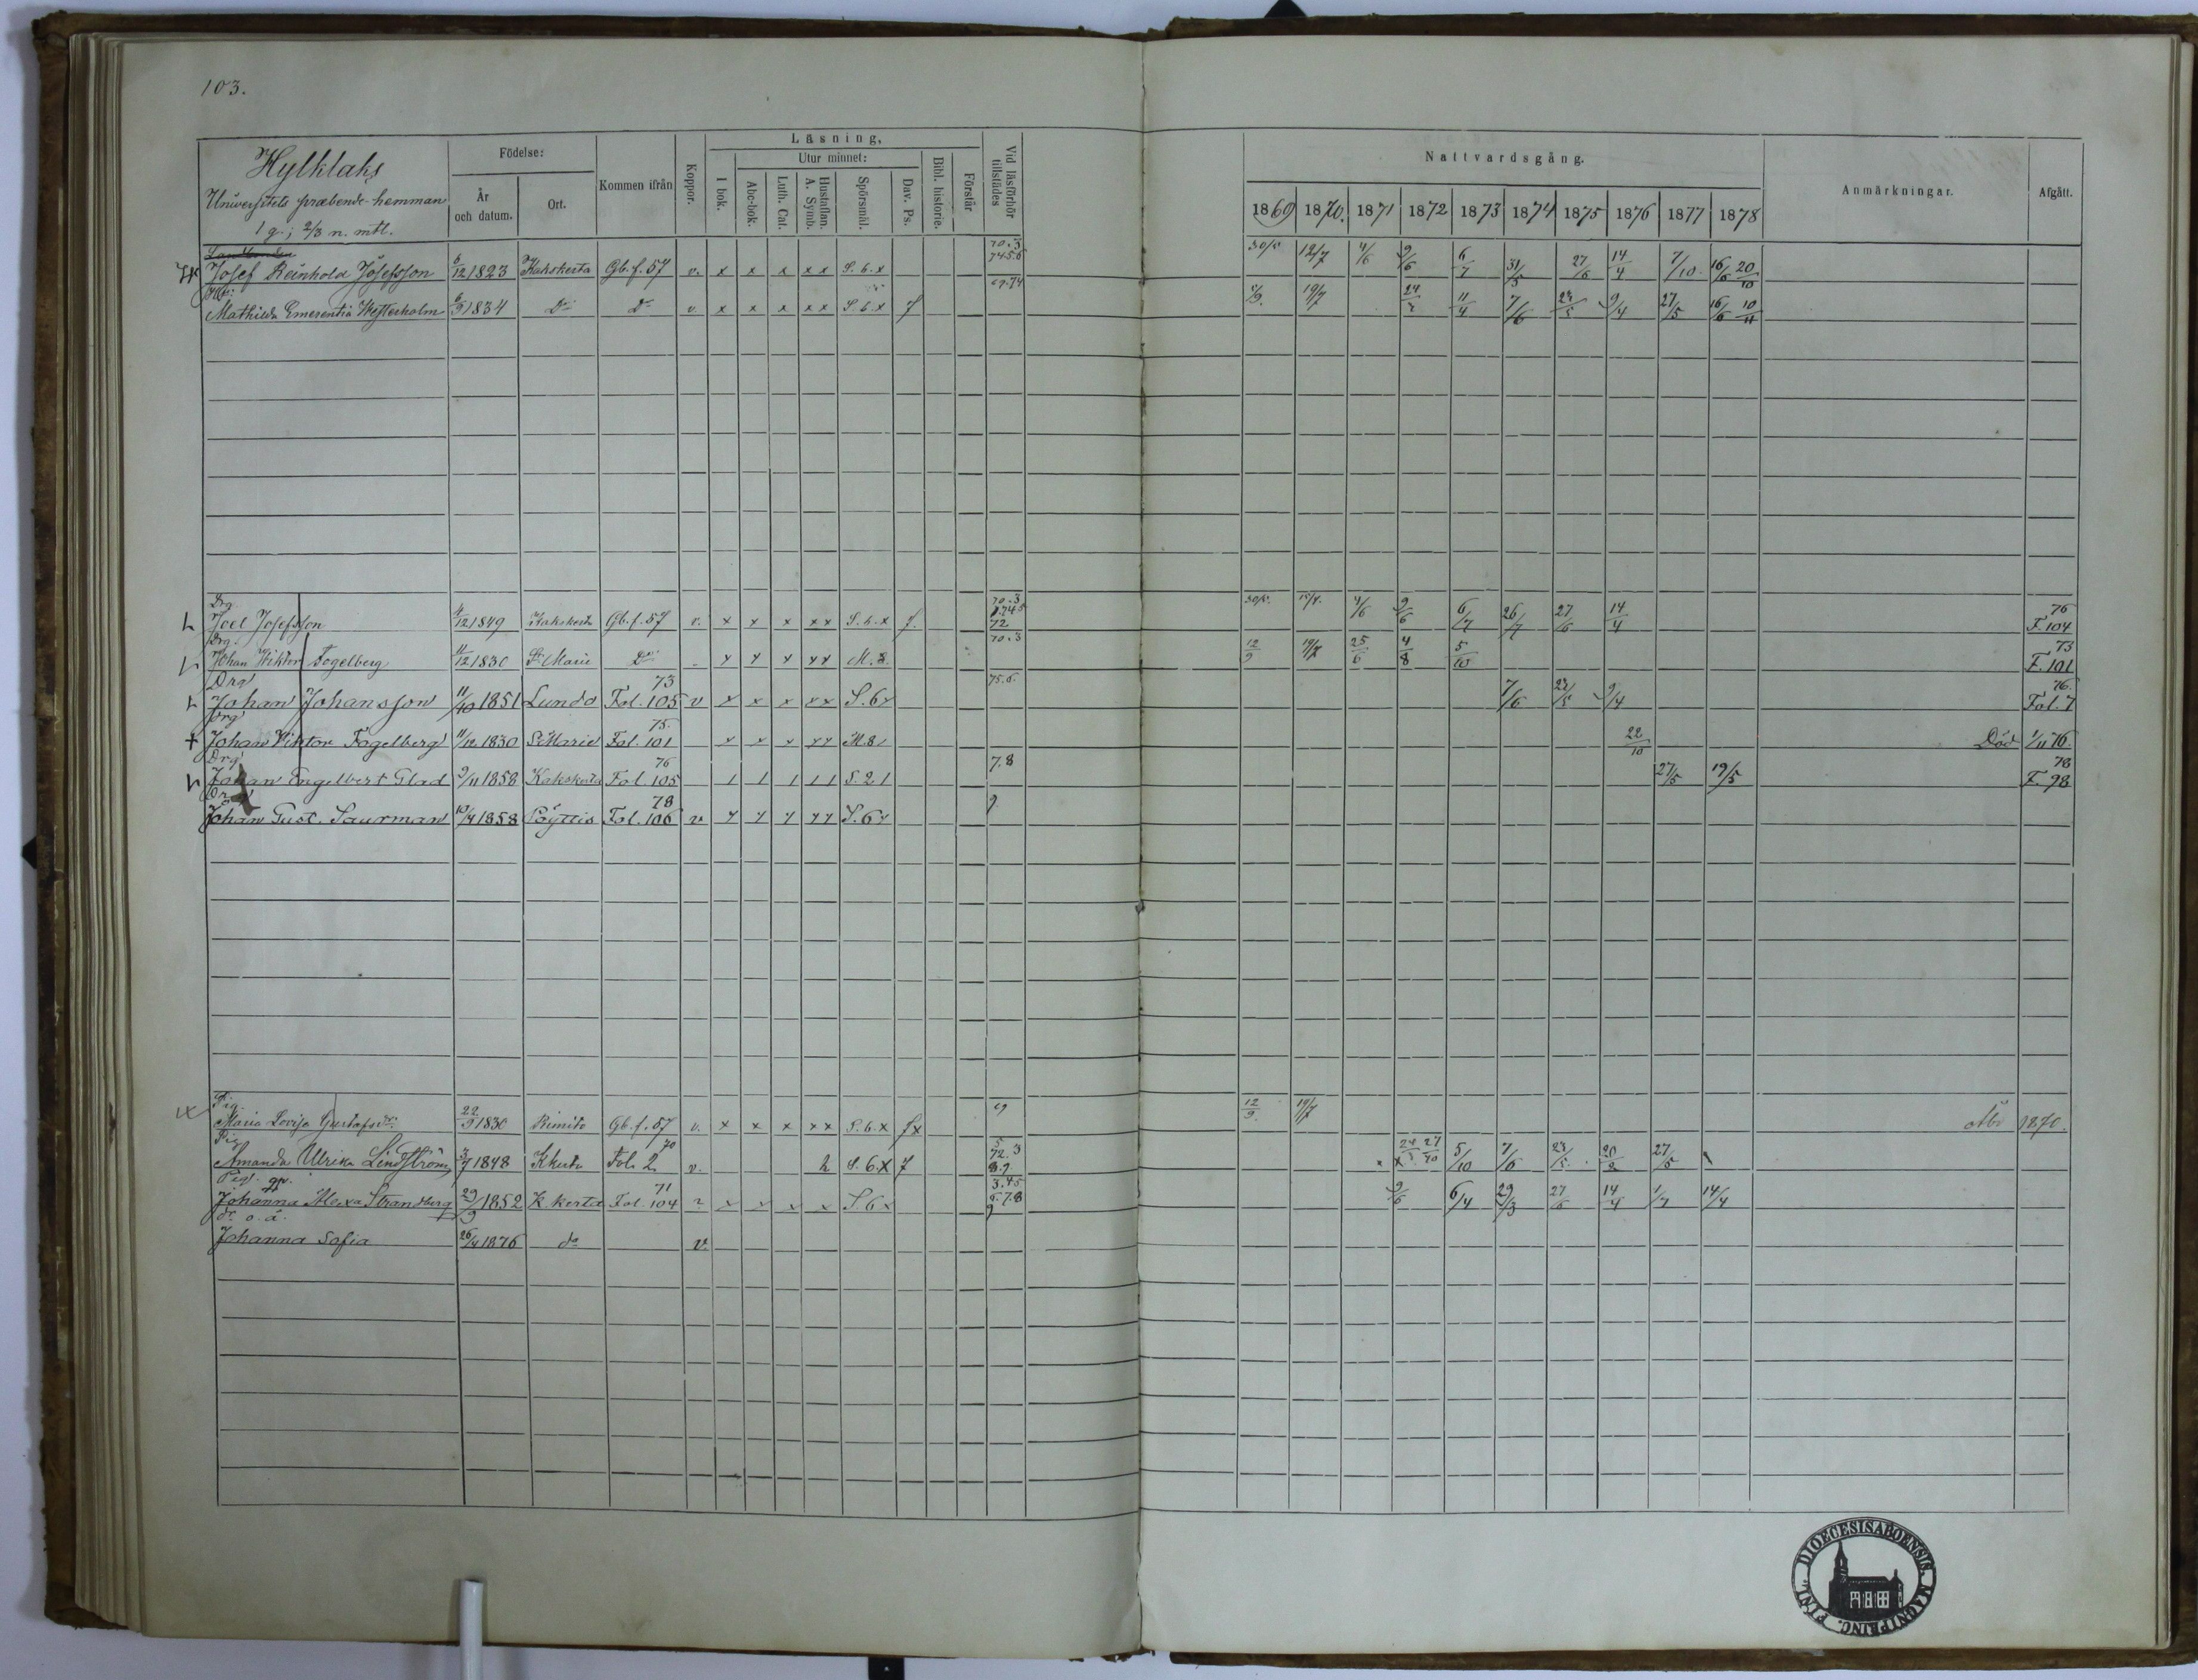 103.
Hylklaks
Universitets præbende-hemman
1 g.; 2/3 n. mtl.
Födelse:
År och datum.
Ort.
Kommen ifrån
Koppor.
Läsning,
I bok.
Utur minnet:
Abc-bok.
Luth. Cat.
Hustaflan. A. Symb.
Spörsmål.
Dav. Ps.
Bibl. historie.
Förstår
Vid läsförhör tillstädes
Nattvardsgång.
1869 1870. 1871 1872 1873 1874 1875 1876 1877 1878
Anmärkningar.
Afgått.
Landbonden
Josef Reinhold Josefsson 6/12 1823 Kakskerta Gb. f. 57 v. x x x x x S. 6. x 70.3 745.6 30/5 12/7 4/6 9/6 6/7 31/5 27/6 14/4 7/10 16/6 20/10
Mathilda Emerentia Westerholm 6/9 1834 Do Do v. x x x x x S. 6 x f 69.74 19/7 11/4 7/6 9/4 27/5 16/6 10/11
Drg
Joel Josefsson 4/12 1849 Kakskerta Gb. f. 57 v. x x x x x S. 6. x f. 70.3 72 4/6 9/6 6/7 26/7 27/6 14/4 76 F. 104
Drg.
Johan Wiktor Fogelberg 11/12 1830 St Marie Do x x x x x M. 8. 70.3 12/9 19/7 25/6 4/8 5/10 73 F. 101
Drg
Johan Johansson 11/10 1851 Lundo 73 Fol. 105 v x x x x x S. 6 x 75.6. 7/6 9/4 76. Fol. 7
Drg
Johan Viktor Fogelberg 11/12 1830 S:Marie 75. Fol. 101 x x x x x M. 8 22/10 Död 1/11 76.
Drg
Johan Engelbert Glad 9/11 1858 Kakskerta 76 Fol. 105 1 1 1 1 1 S. 2 1 7.8 27/5 19/5 78 F. 98
Drg
Johan Gust. Saurman 10/4 1858 Pöyttis 78 Fol. 106 v x x x x x S. 6 x 9.
Pig.
Maria Lovisa Gustafsdr. 22/9 1830 Rimito Gb. f. 57 v. x x x x x S. 6. x f x 9 12/9 19/7 Åbo 1870.
Pig
Amanda Ulrika Lindström 3/7 1848 Kkerta 70 Fol. 2 v. S. 6 x 7 72.3 8.9 27/10 5/10 7/6 27/5
Pig.
Johanna Alexa Strandberg 29/9 1852 K. kerta 71 Fol. 104 x x x x S. 6 x 3.45 6.7.8 9 9/6 6/4 29/3 27/6 14/4 1/7 14/4
dr. o. ä.
Johanna Sofia 26/4 1876 do v.
DIOECESIS ABOENSIS. MAGNI PRINC. FINL.